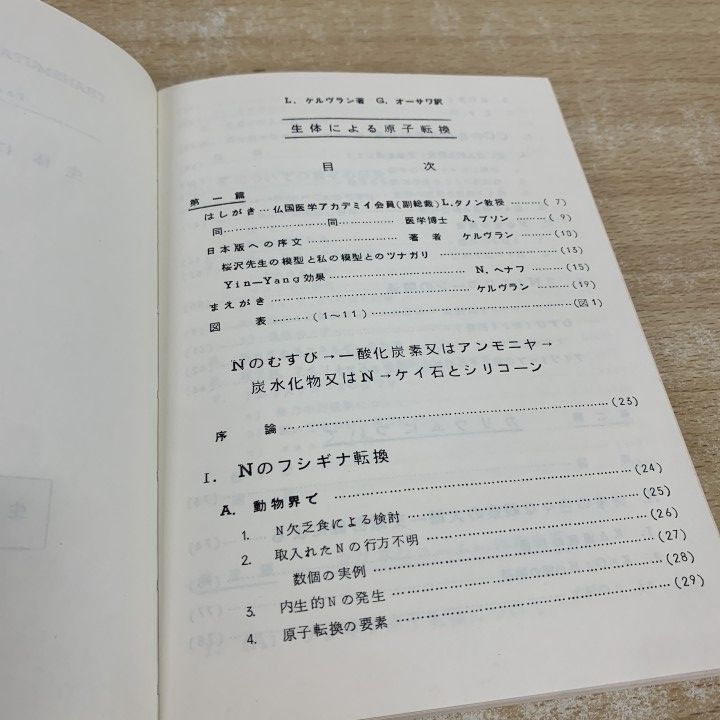 L. ケルヴラン著 G. オーサワ訳
生体による原子転換
目 次
第一篇
はしがき…仏国医学アカデミイ会員(副総裁)L.タノン教授………( 7)
同……………………同……………… 医学博士 A.プソン………( 9)
日本版への序文……………………著 者 ケルヴラン………(10)
桜沢先生の模型と私の模型とのツナガリ……………………(13)
Yin—Yang効果……………………………N.ヘナフ………(15)
まえがき……………………………………ケルヴラン………(19)
図 表………(1〜11)……………………………………(図1)
Nのむすび→一酸化炭素又はアンモニヤ→
炭水化物又はN→ケイ石とシリコーン
序 論……………………………………………………(23)
I. Nのフシギナ転換
A. 動物界で……………………………………………(24)
1. N欠乏食による検討……………………………………(25)
2. 取入れたNの行方不明…………………………………(26)
数個の実例………………………………………………(27)
3. 内生的Nの発生…………………………………………(28)
4. 原子転換の要素…………………………………………(29)
TRANSMUTA
生体に
生